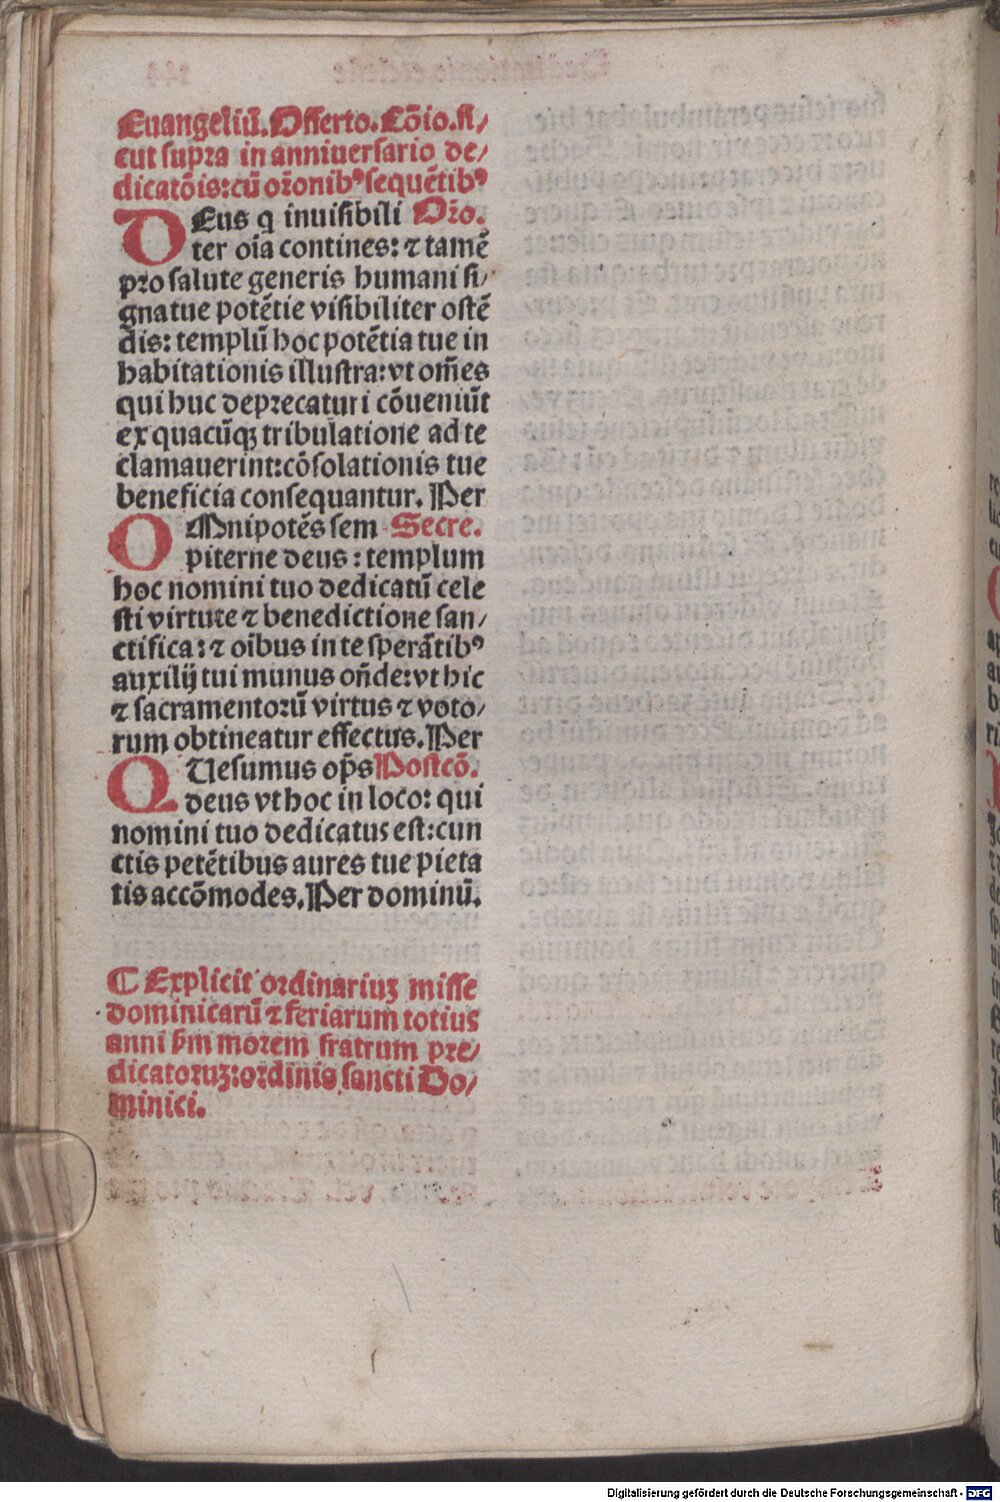 Euangeliū. Offerto. Cōio. si/
cut supra in anniuersario de/
dicatōis: cū or̄onibꝰ sequētibꝰ
DEus q inuisibili Or̄o.
ter oīa contines: ⁊ tamē
pro salute generis humani si/
gna tue potētie visibiliter ostē
dis: templū hoc potētia tue in
habitationis illustra: vt om̄es
qui huc deprecaturi cōueniūt
ex quacūqꝫ tribulatione ad te
clamauerint: cōsolationis tue
beneficia consequantur. Per
OMnipotēs sem Secre.
piterne deus: templum
hoc nomini tuo dedicatū cele
sti virtute ⁊ benedictione san/
ctifica: ⁊ oībus in te sperātibꝰ
auxilij tui munus on̄de: vt hic
⁊ sacramentorū virtus ⁊ voto/
rum obtineatur effectus. Per
QUesumus op̄s Postcō.
deus vt hoc in loco: qui
nomini tuo dedicatus est: cun
ctis petētibus aures tue pieta
tis accōmodes. Per dominū.
¶ Explicit ordinariuꝫ misse
dominicarū ⁊ feriarum totius
anni ẜm morem fratrum pre/
dicatoruꝫ: ordinis sancti Do/
minici.
Digitalisierung gefördert durch die Deutsche Forschungsgemeinschaft - DFG